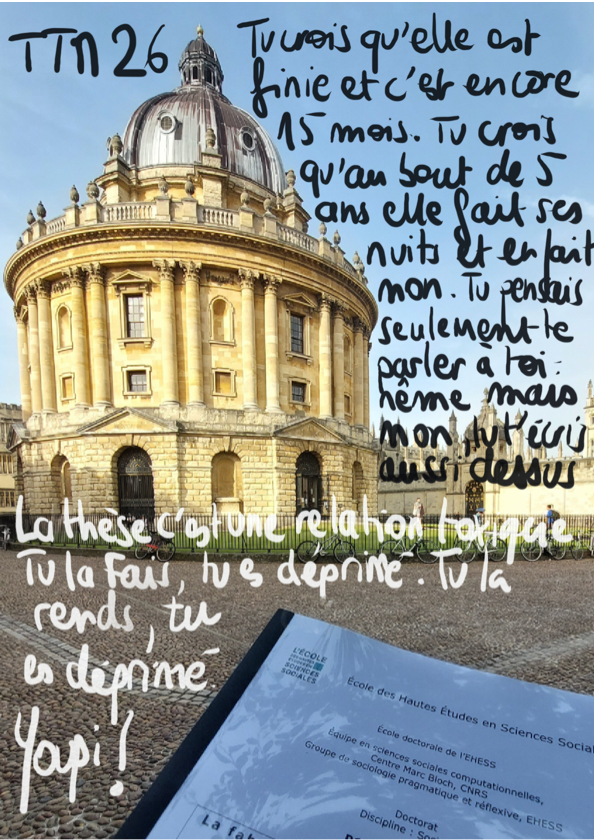 TTM 26
Tu crois qu'elle est
finie et c'est encore
15 mois. Tu crois
qu'au bout de 5
ans elle fait ses
nuits et en fait
non. Tu pensais
seulement te
parler à toi-
même mais
non, tu t'écris
aussi dessus
La thèse c'est une relation toxique
Tu la fais, tu es déprimé. Tu la
rends, tu
es déprimé
Yapi!
L'ÉCOLE
DES HAUTES
ÉTUDES EN
SCIENCES
SOCIALES
École des Hautes Études en Sciences Social
École doctorale de l'EHESS
Équipe en sciences sociales computationnelles,
Centre Marc Bloch, CNRS
Groupe de sociologie pragmatique et réflexive, EHESS
Doctorat
Discipline : Soc
La fab